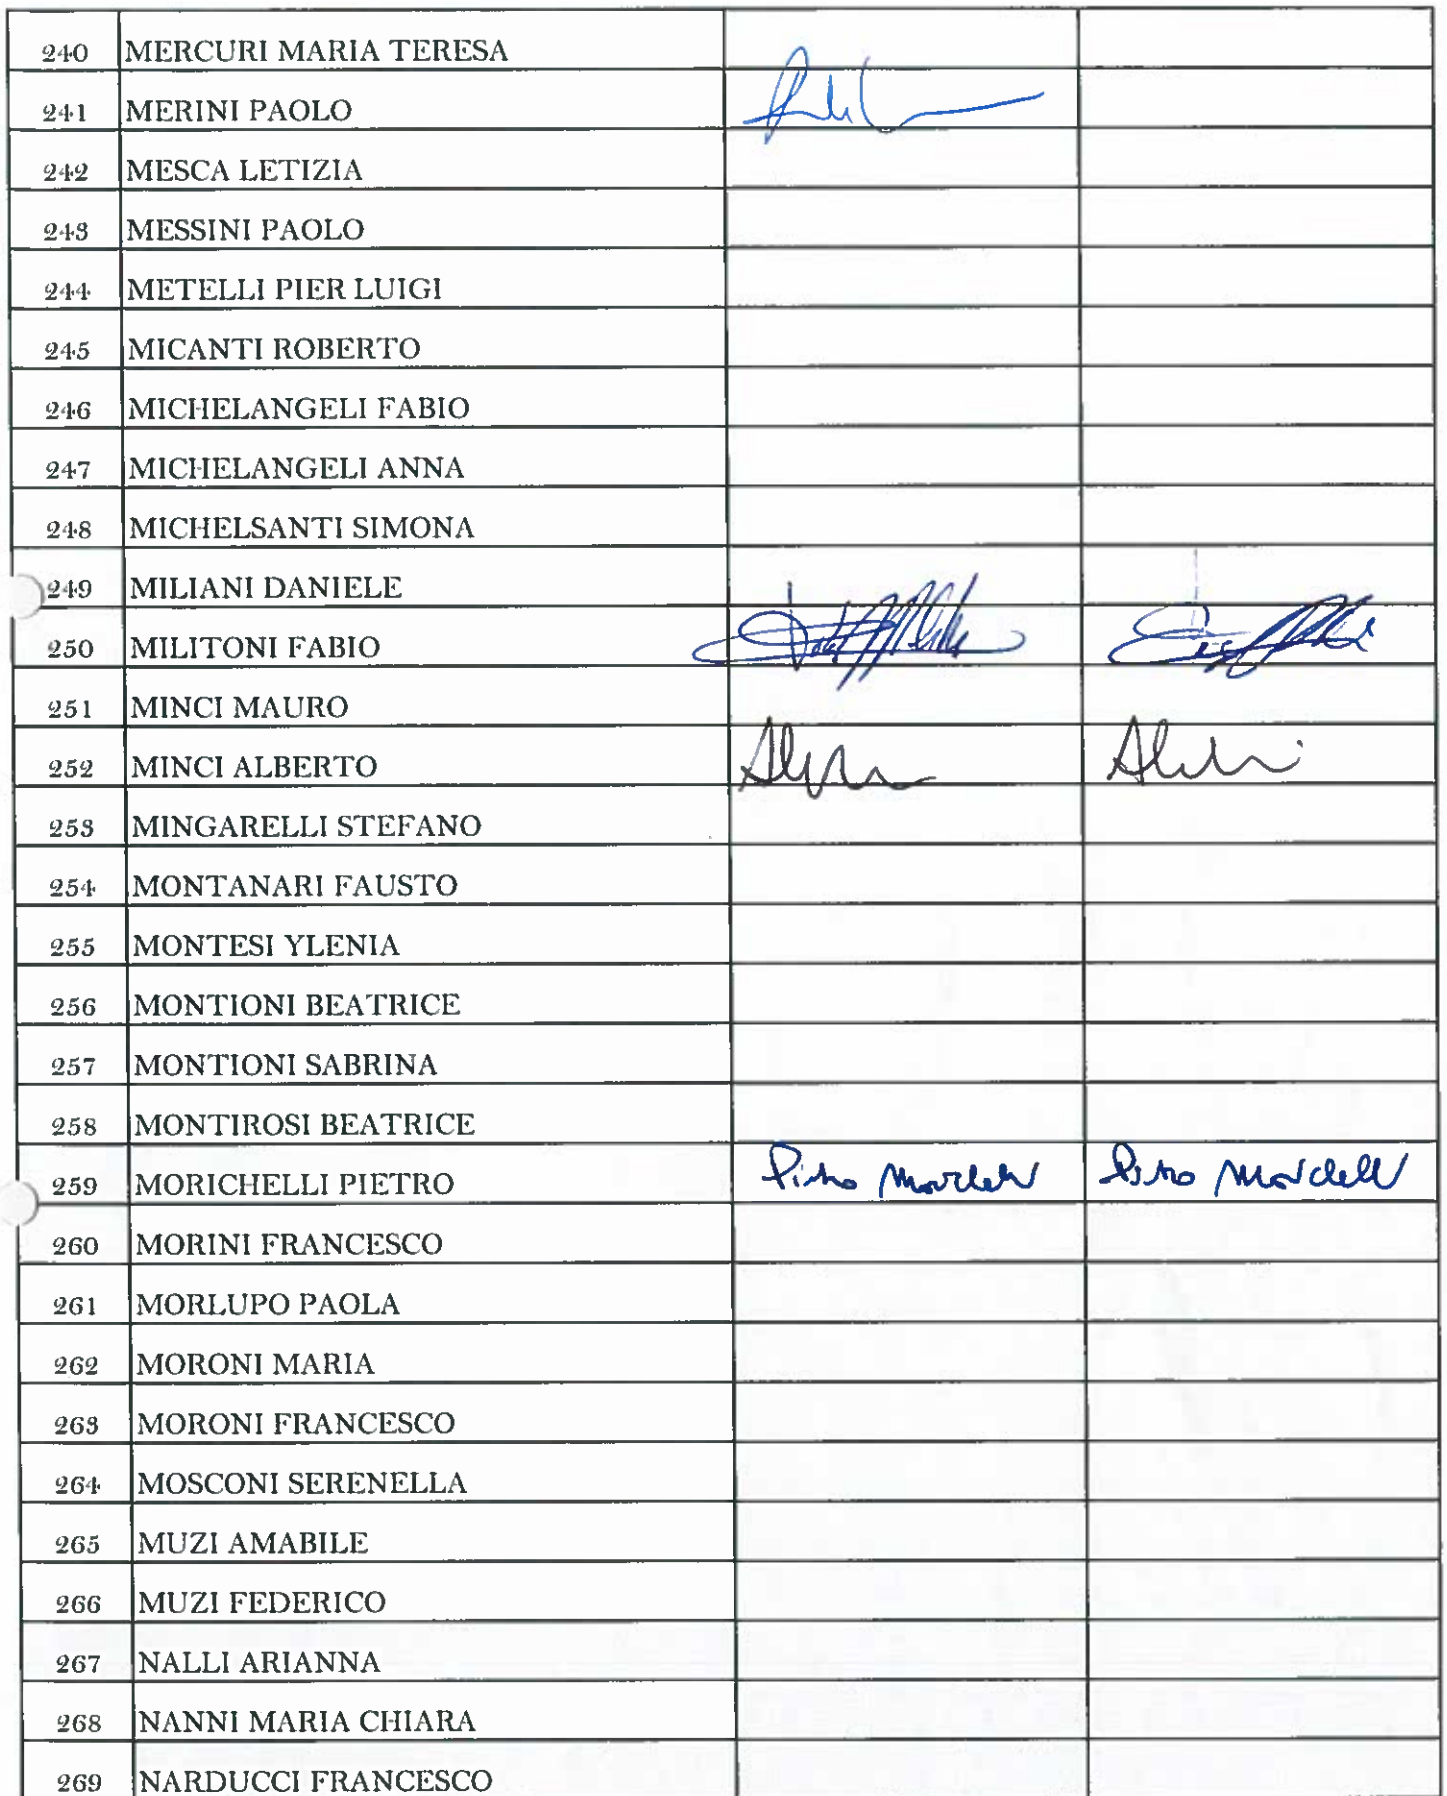 240 MERCURI MARIA TERESA
241 MERINI PAOLO
242 MESCA LETIZIA
243 MESSINI PAOLO
244 METELLI PIER LUIGI
245 MICANTI ROBERTO
246 MICHELANGELI FABIO
247 MICHELANGELI ANNA
248 MICHELSANTI SIMONA
249 MILIANI DANIELE
250 MILITONI FABIO
251 MINCI MAURO
252 MINCI ALBERTO
253 MINGARELLI STEFANO
254 MONTANARI FAUSTO
255 MONTESI YLENIA
256 MONTIONI BEATRICE
257 MONTIONI SABRINA
258 MONTIROSI BEATRICE
259 MORICHELLI PIETRO
260 MORINI FRANCESCO
261 MORLUPO PAOLA
262 MORONI MARIA
263 MORONI FRANCESCO
264 MOSCONI SERENELLA
265 MUZI AMABILE
266 MUZI FEDERICO
267 NALLI ARIANNA
268 NANNI MARIA CHIARA
269 NARDUCCI FRANCESCO